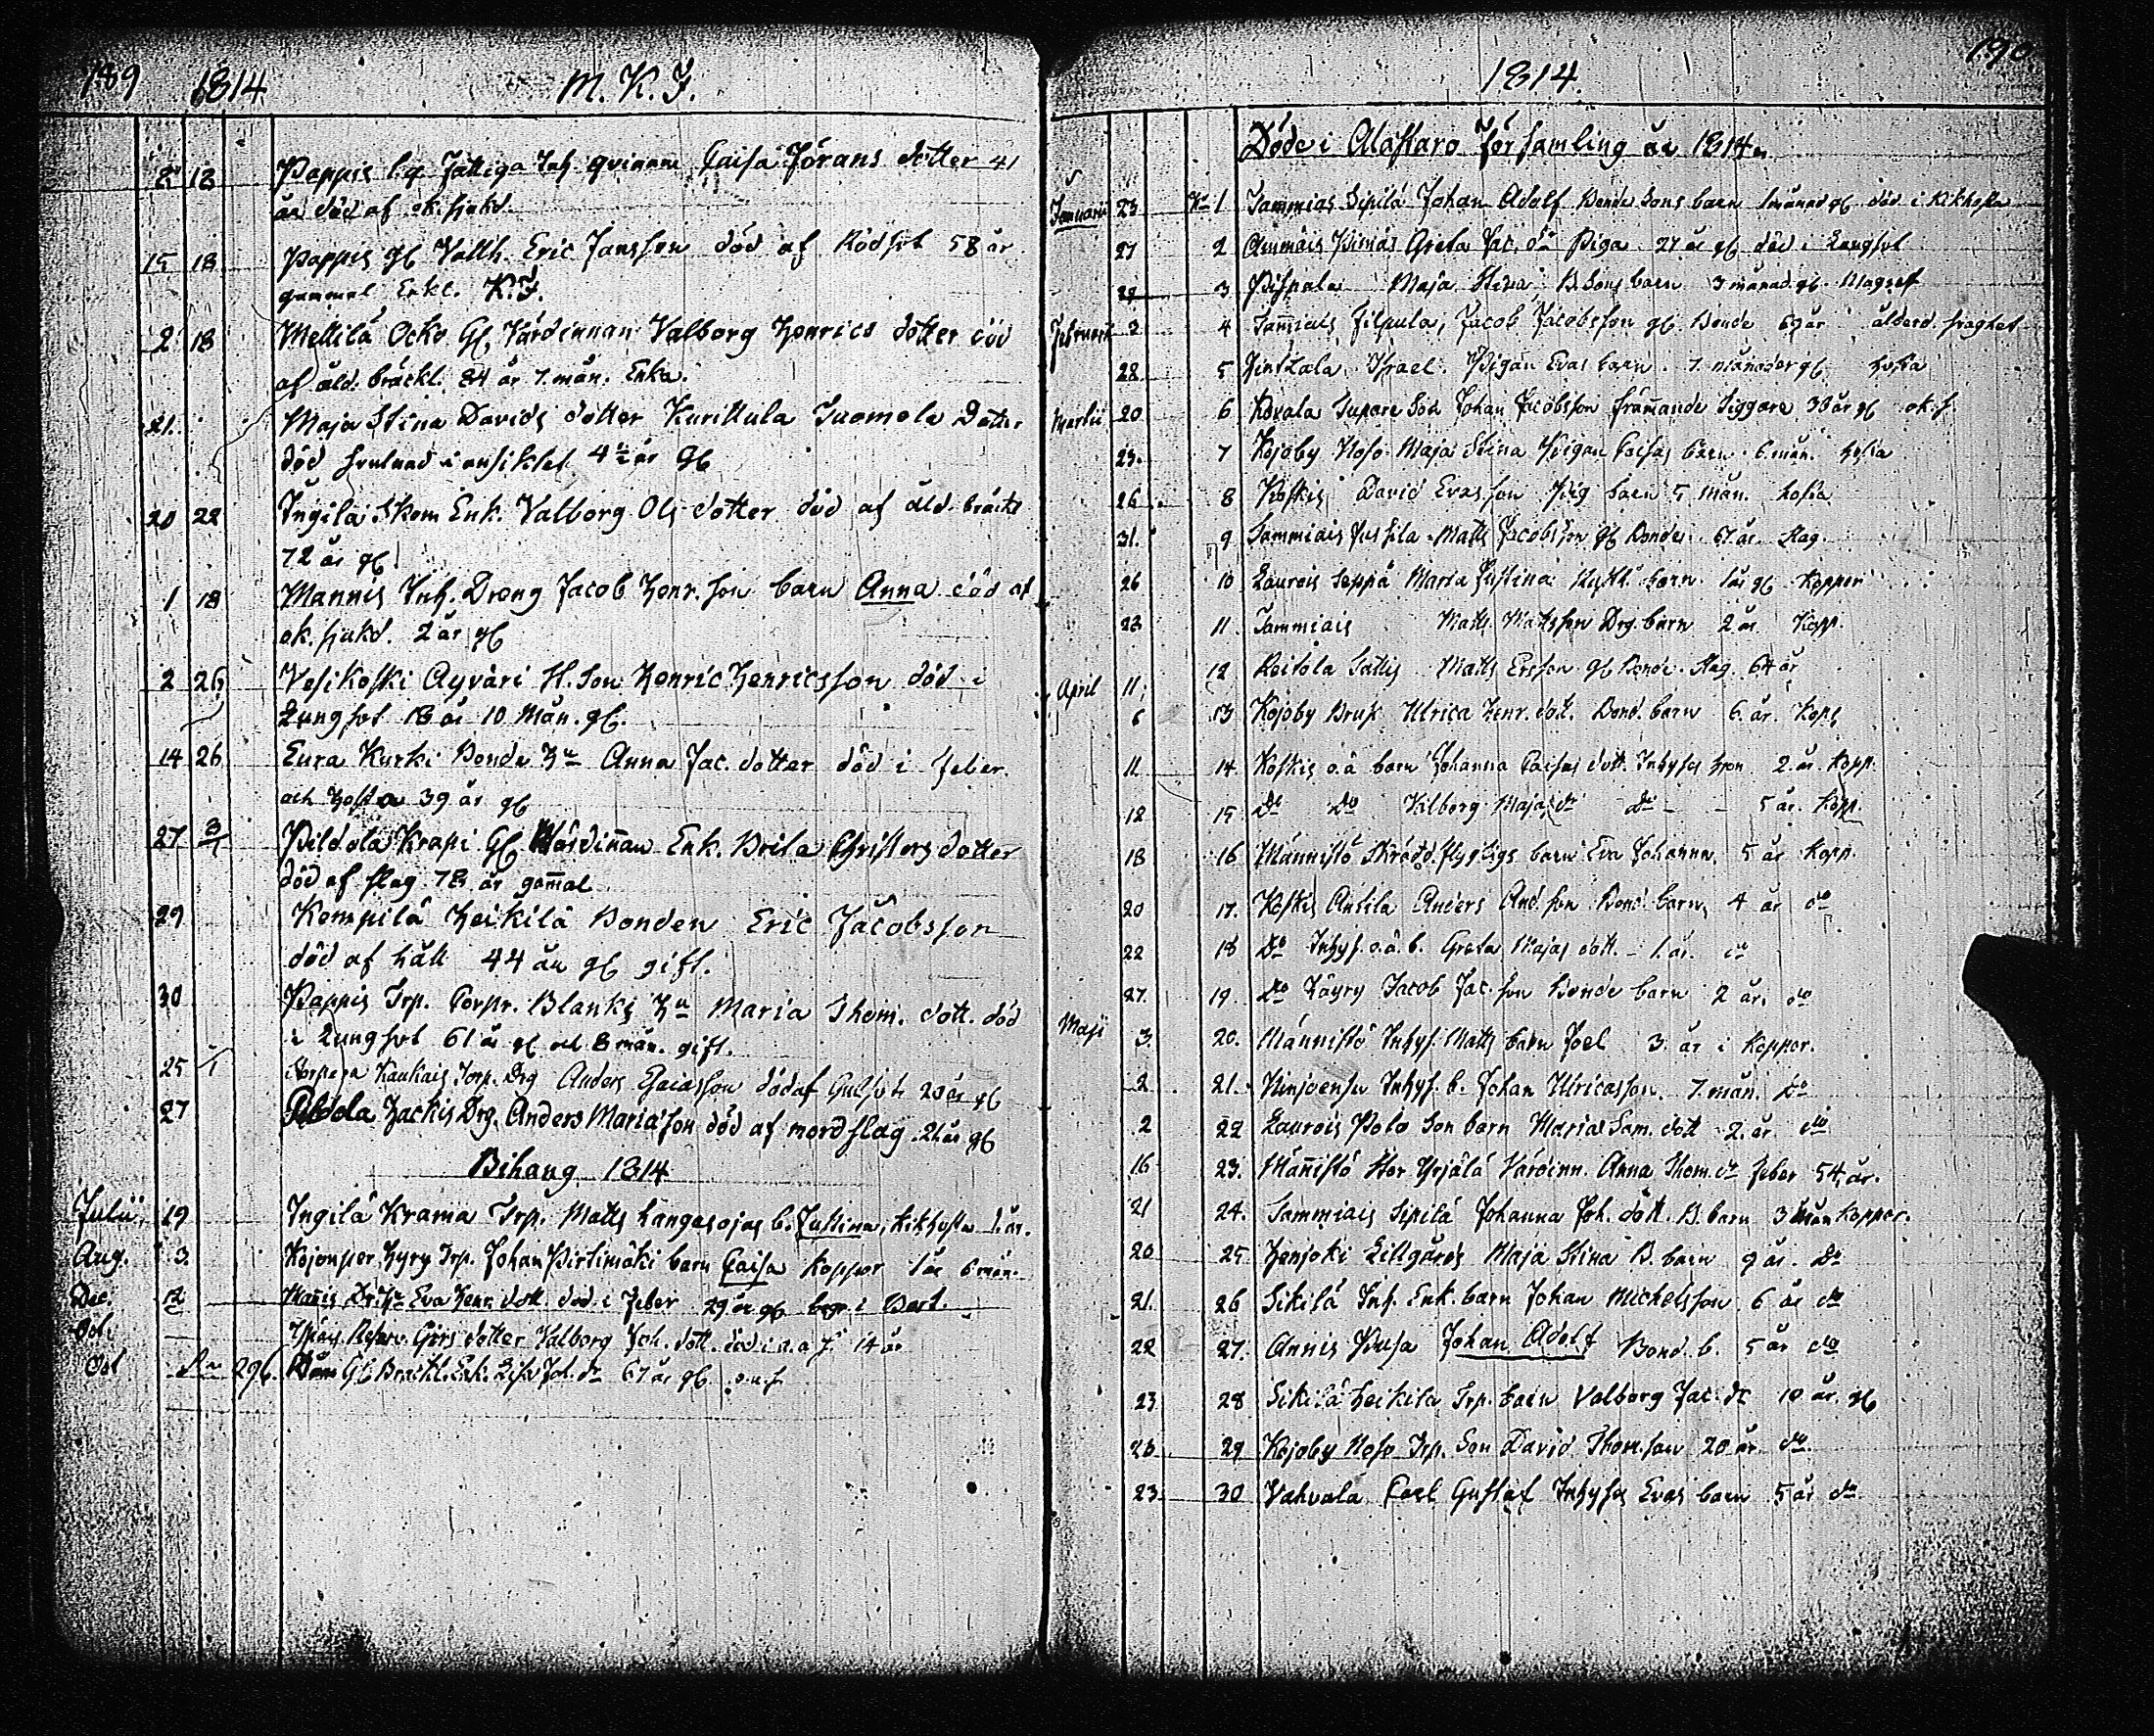 189 1814 M. K. F.
8 18 Pappis lg. fattiga Inh. qvinnan Caisa Jörans dotter 41
år död af ok. sjukd.
15 18 Pappis gl. Vallh. Eric Jansson död af Rödsot 58 år
gammal Enkl. K.F.
2 18 Mellilä Ocko Gl. Värdinnan Valborg Henrics dotter död
af åld. bräckl. 84 år 7. mån. Enka.
21. Maja Stina Davids dotter Kurittula Tuomola Dotter
död i ansiktet 4½ år gl
20 22 Ingila Enk. Valborg Ols dotter död af åld. bräckl
72 år gl
1 18 Mannis Inh. Dreng Jacob Henr. son barn Anna död af
ok. sjukd. 2 år gl
2 26 Vesikoski Äyväri H. Son Henric Henricsson död i
Lungsot 18 år 10 Mån. gl.
14 26 Eura Kurki Bonde Hu Anna Jac. dotter död i feber
och hosta 39 år gl
27 3/1 Krapi Gl. Värdinnan Enk. Brita Christers dotter
död af slag 78 år gammal
29 Kempilä Heikilä Bonden Eric Jacobsson
död af håll 44 år gl gift.
30 Pappis Trp. Corpr. Blanks Hu Maria Thom. dott. död
i Lungsot 61 år gl och 8 mån. gift.
25 1 Kaukais Torp. Drg Anders död af Gulsot 20 år gl
27 Peldola Jackis Drg. Anders Mariæson död af mordslag 21 år gl
Bihang 1814
Julii 19 Ingilä Krama Trp. Matts Hangasojas b. Justina, kikhosta 1 år.
Aug. 3. Hyry Trp. Johan Pirtimäki barn Caisa koppor 1 år 6 mån.
Dec. 12 Manis Eva Henr. dott. död i feber 29 år gl begr. i
Oct. Girs dotter Valborg Joh. dott. död i 14 år
Oct 296. Gl. Enk. Lisa Joh. dr 67 år gl.
1814. 190.
Döde i Alastaro Församling år 1814.
Januarii 23 No 1 Tammiais Sipilä Johan Adolf Bonde Sons barn 1 månad gl död i kikhosta
27 2 Greta Jac. dr Piga 27 år gl död i Lungsot
29 3 Pispala Maja Stina B. Sons barn 3 månad. gl. Magref
Februarii 2 4 Tammiais Filpula, Jacob Jacobsson gl. Bonde 69 år ålderd.
28 5 Israel Pigan Evas barn. 7. månader gl hosta
Martii 20 6 Sou Johan Jacobsson främande Tiggare 38 år gl ok. s.
23. 7 Kojoby Noso Maja Stina Pigan Caisas barn. 6. mån. hosta
26. 8 Koskis David Evasson Pig barn 5 mån. hosta
31. 9 Tammiais Jussila Matts Jacobsson gl Bonde 67 år Slag.
26 10 Laurois Seppä Maria Justina barn 1 år gl Koppor
23 11. Tammiais Matts Mattsson Drg. barn 2 år Kopp.
April 11. 12 Matts Ersson gl Bonde Slag. 64 år
6 13 Kojoby Ulrica Henr. dott. Bond. barn 6. år. Kopp
11. 14 Koskis o.ä. barn Johanna Caisas dott. Inhyses hion 2. år. Kopp.
12 15 Do Do Valborg Majas dr Do 5 år. Kopp.
18 16 Männistö Skrädd. barn Eva Johanna. 5 år Kopp.
20 17. Koskis Antila Anders And. son Bond. barn, 4 år do
22 18 Do Inhys. o.ä. b. Greta Majas dott. 1. år. do
27. 19. Do Jacob Jac. son Bonde barn 2 år, do
Maji 3. 20. Männistö Inhys. Matts barn Joel 3. år i koppor.
2 21. Inhys. b. Johan Ulricasson. 7. mån. do
2 22 Laurois Polo Son barn Maria Sam. dott 2. år do
16 23. Mänistö Yrjälä Värdinn. Anna Thom. dr feber 54 år.
21 24. Tammiais Sipilä Johanna Joh. dött. B. barn 3 mån koppor.
20 25. Henjoki Lillgårds Maja Stina B. barn 9 år. Do
21. 26 Sikilä Inh. Enk. barn Johan Michelsson 6 år do
22 27. Annis Pusa Johan Adolf Bond. b. 5 år do
23 28 Sikilä Heikilä Trp. barn Valborg Jac. dr 10 år. gl
23. 29 Kojoby Noso Trp. Son David Thom.son 20 år do.
23. 30 Vahvala Carl Gustaf Inhyses Evas barn 5 år do.